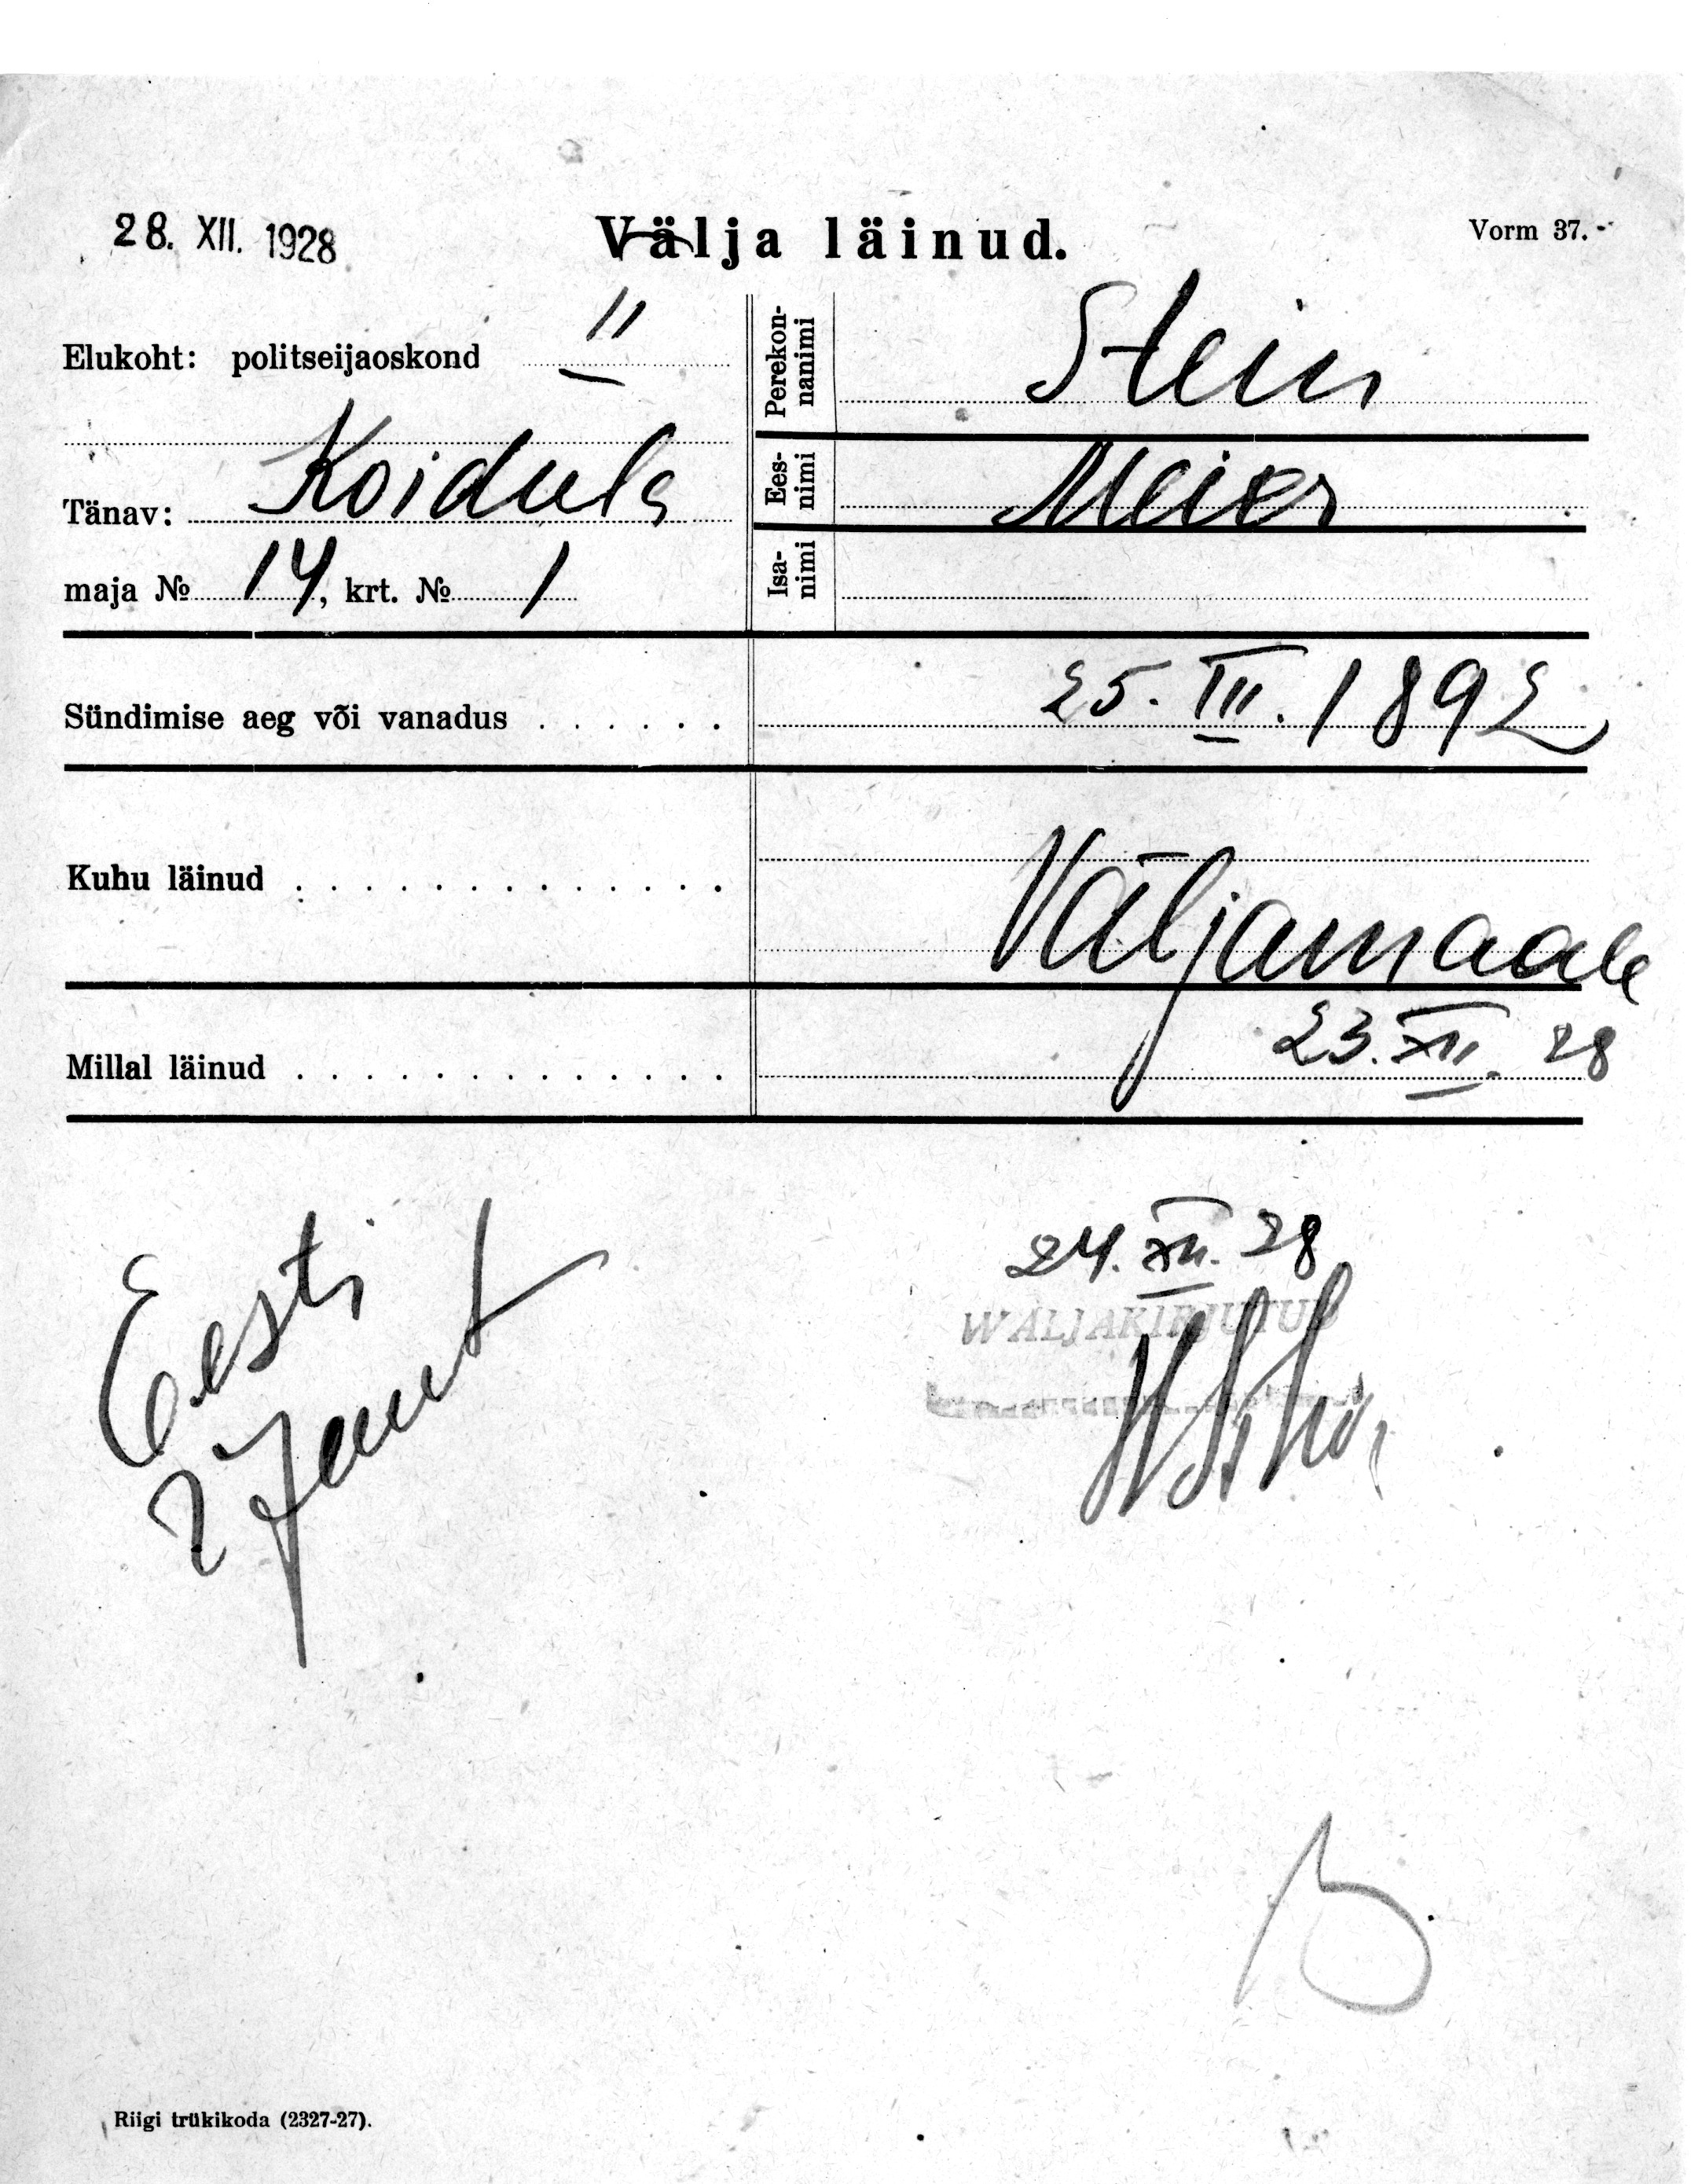 28. XII. 1928
Välja läinud.
Vorm 37.
Elukoht: politseijaoskond II
Tänav: Koidula
maja № 14, krt. № 1
Perekon-
nanimi
Stein
Ees-
nimi
Meier
Isa-
nimi
Sündimise aeg või vanadus . . . . . . 25. III. 1892
Kuhu läinud . . . . . . . . . . . . . Väljamaale
Millal läinud . . . . . . . . . . . . . 23. XII. 28
Eesti
24. XII. 28
WÄLJAKIRJUTUD
Riigi trükikoda (2327-27).